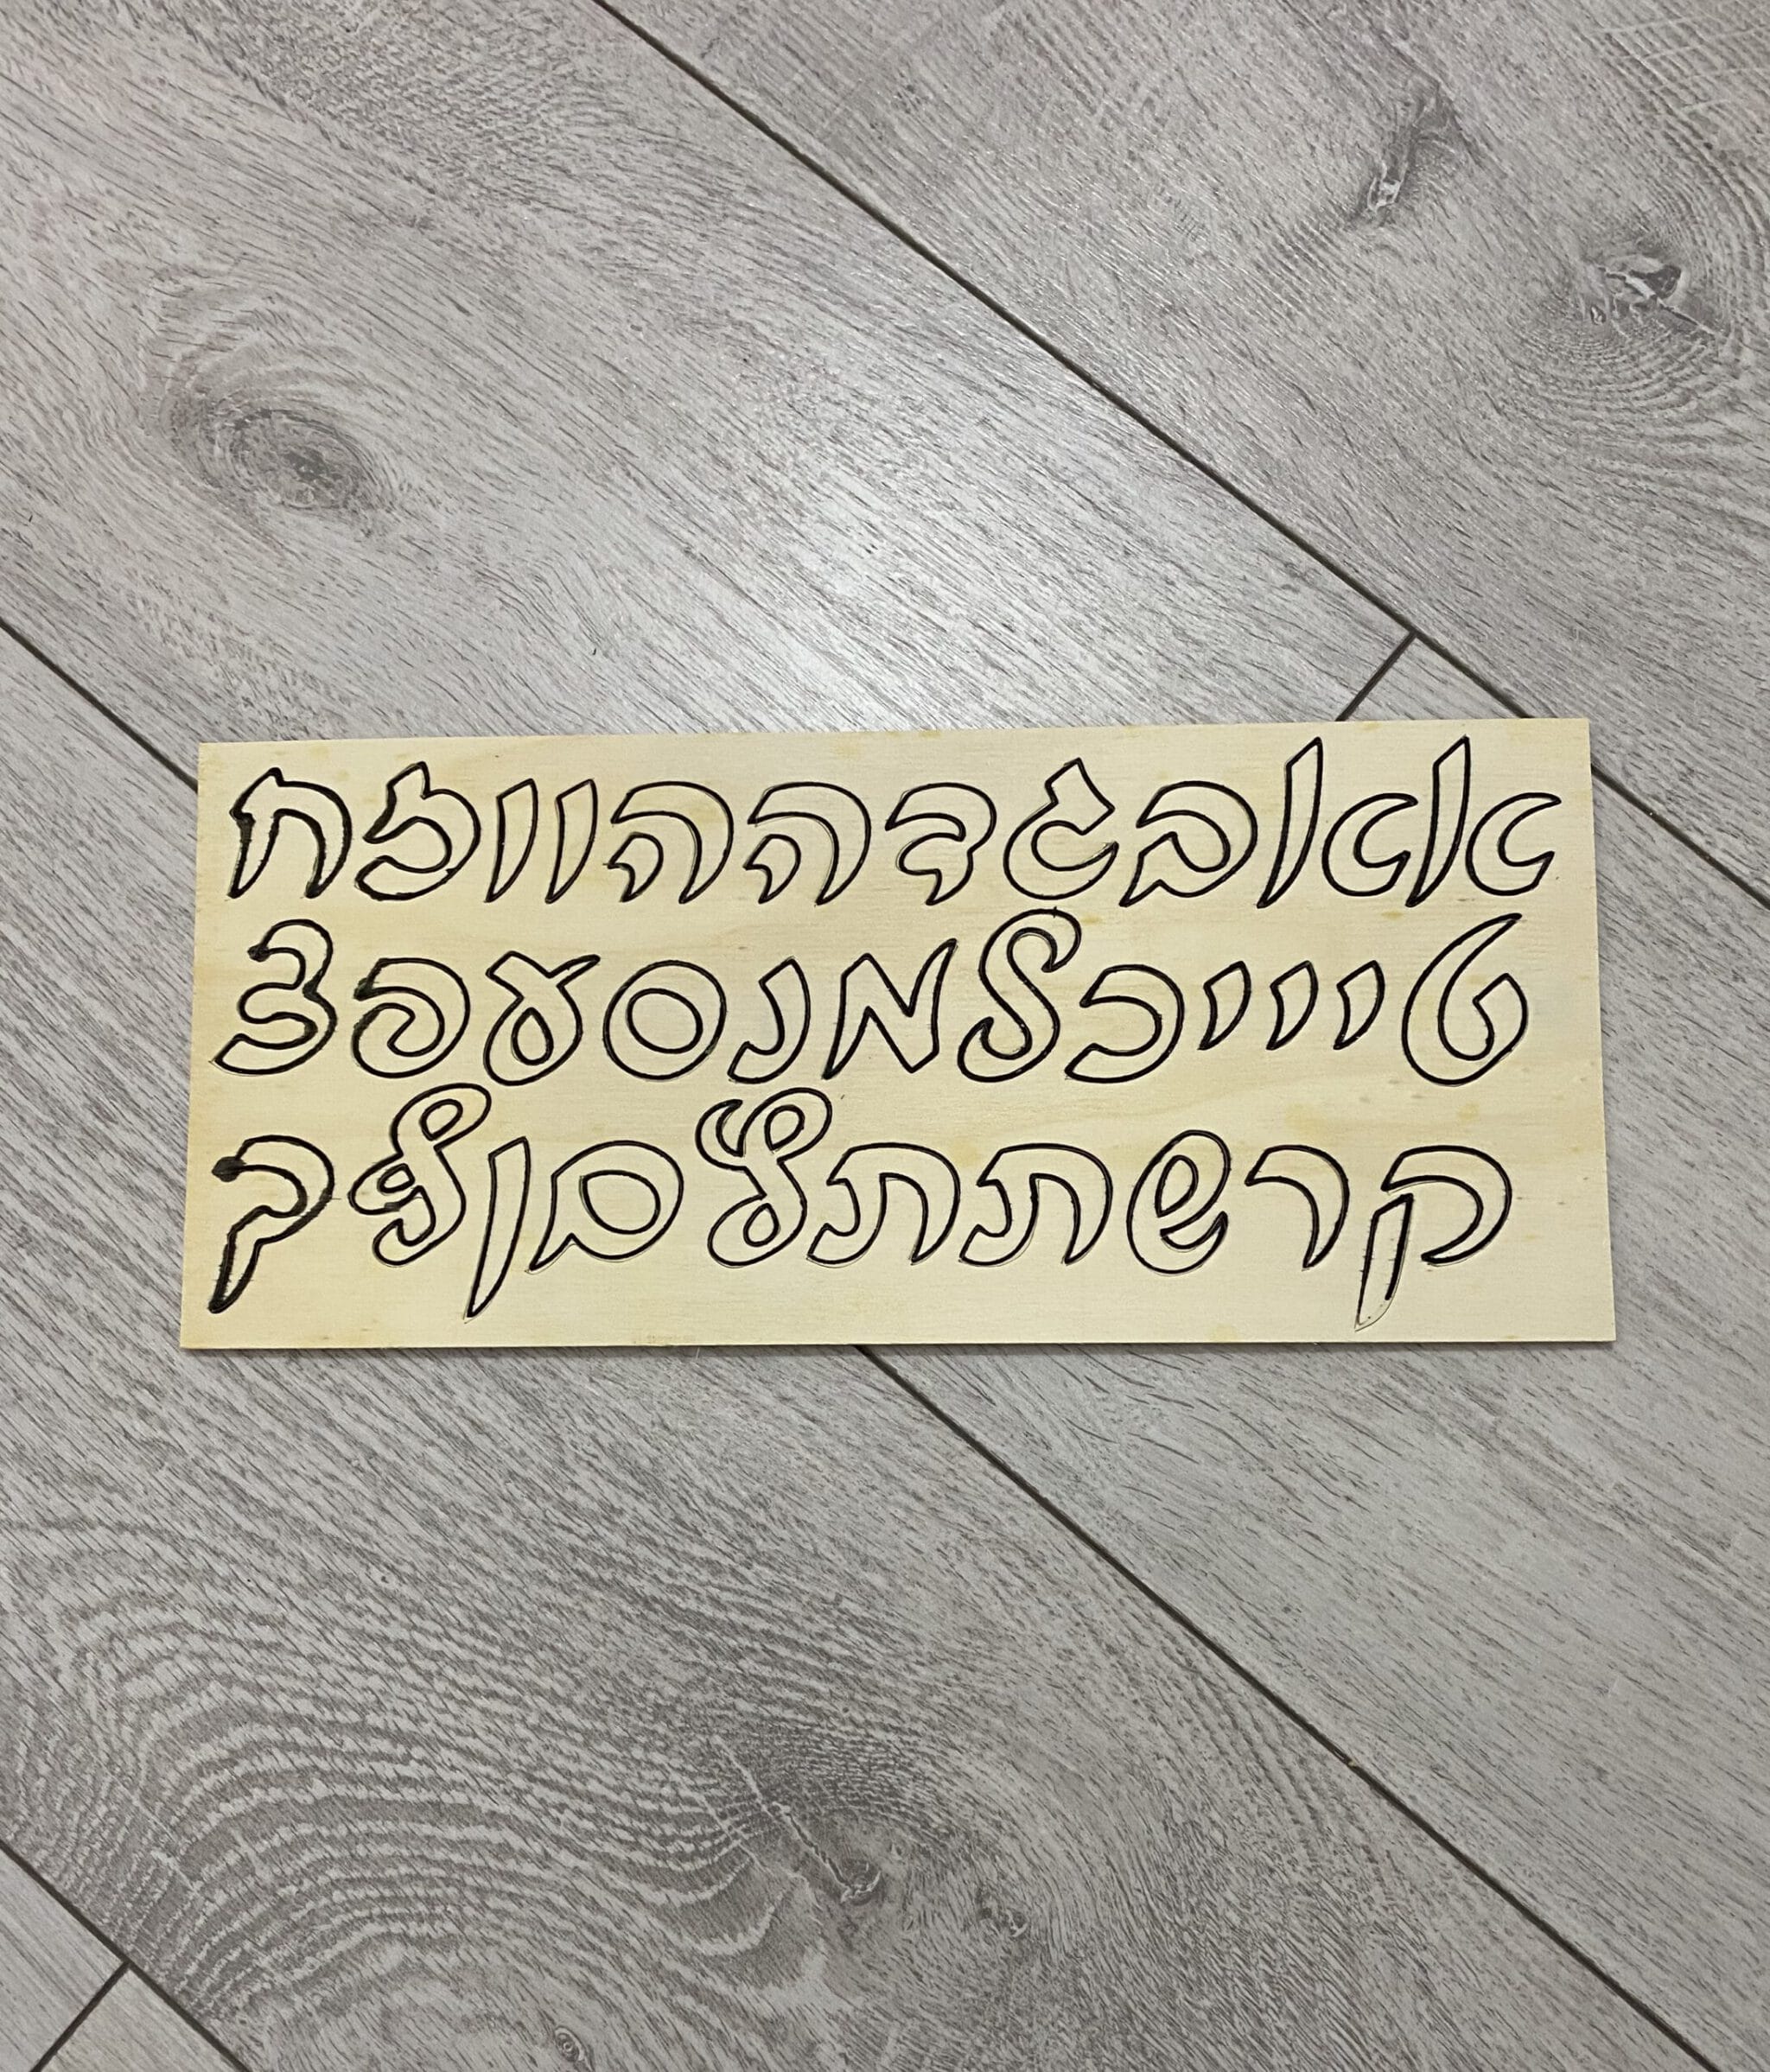 אאבגדההווזח
טיייכלמנסעפצ
קרשתתץםןףך